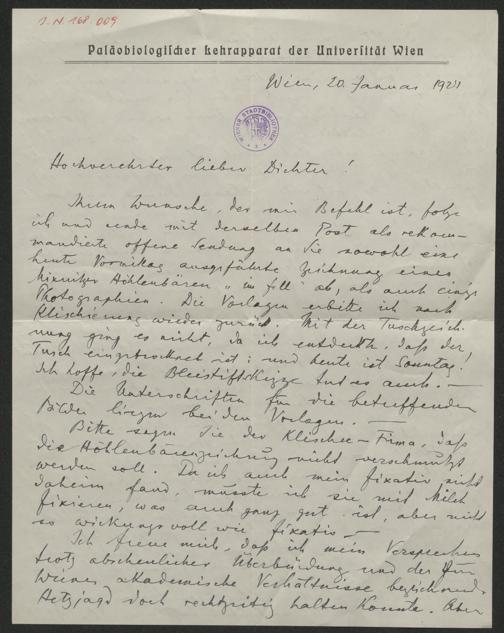 J. N. 168.009
Paläobiologischer Lehrapparat der Universität Wien
Wien, 20. Januar 1924
WIENER STADTBIBLIOTHEK
Hochverehrter lieber Dichter!
Ihrem Wunsche, der mir Befehl ist, folge
ich und sende mit derselben Post als rekom-
mandierte offene Sendung an Sie sowohl eine
heute Vormittag ausgeführte Zeichnung eines
Mixnitzer Höhlenbären „im Fell" ab, als auch einige
Photographien. Die Vorlagen erbitte ich nach
Klischierung wieder zurück. Mit der Tuschzeich-
nung ging es nicht, da ich entdeckte, daß der
Tusch eingetrocknet ist; und heute ist Sonntag.
Ich hoffe, die Bleistiftskizze tut es auch. —
Die Unterschriften für die betreffenden
Bilder liegen bei den Vorlagen. —
Bitte sagen Sie der Klischee-Firma, daß
die Höhlenbärenzeichnung nicht verschmutzt
werden soll. Da ich auch mein Fixativ nicht
daheim fand, mußte ich sie mit Milch
fixieren, was auch ganz gut ist, aber nicht
so wirkungsvoll wie Fixativ —
Ich freue mich, daß ich mein Versprechen
trotz abscheulicher Überbürdung und der für
Wiener akademische Verhältnisse bezeichnenden
Hetzjagd doch rechtzeitig halten konnte. Aber